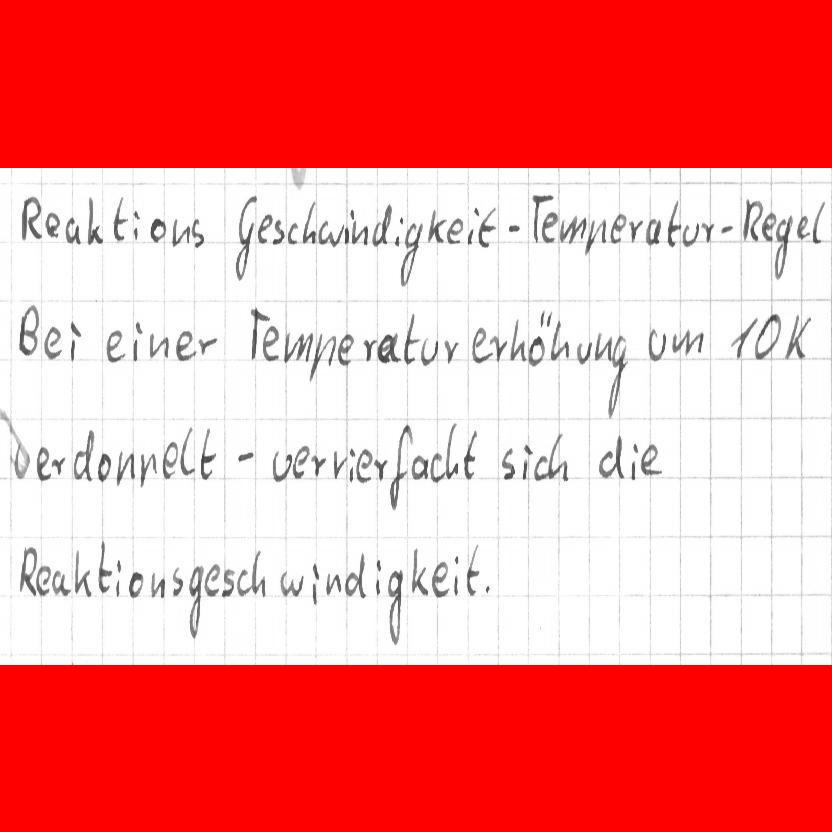 Reaktions Geschwindigkeit-Temperatur-Regel
Bei einer Temperaturerhöhung um 10K
verdoppelt - vervierfacht sich die
Reaktionsgeschwindigkeit.